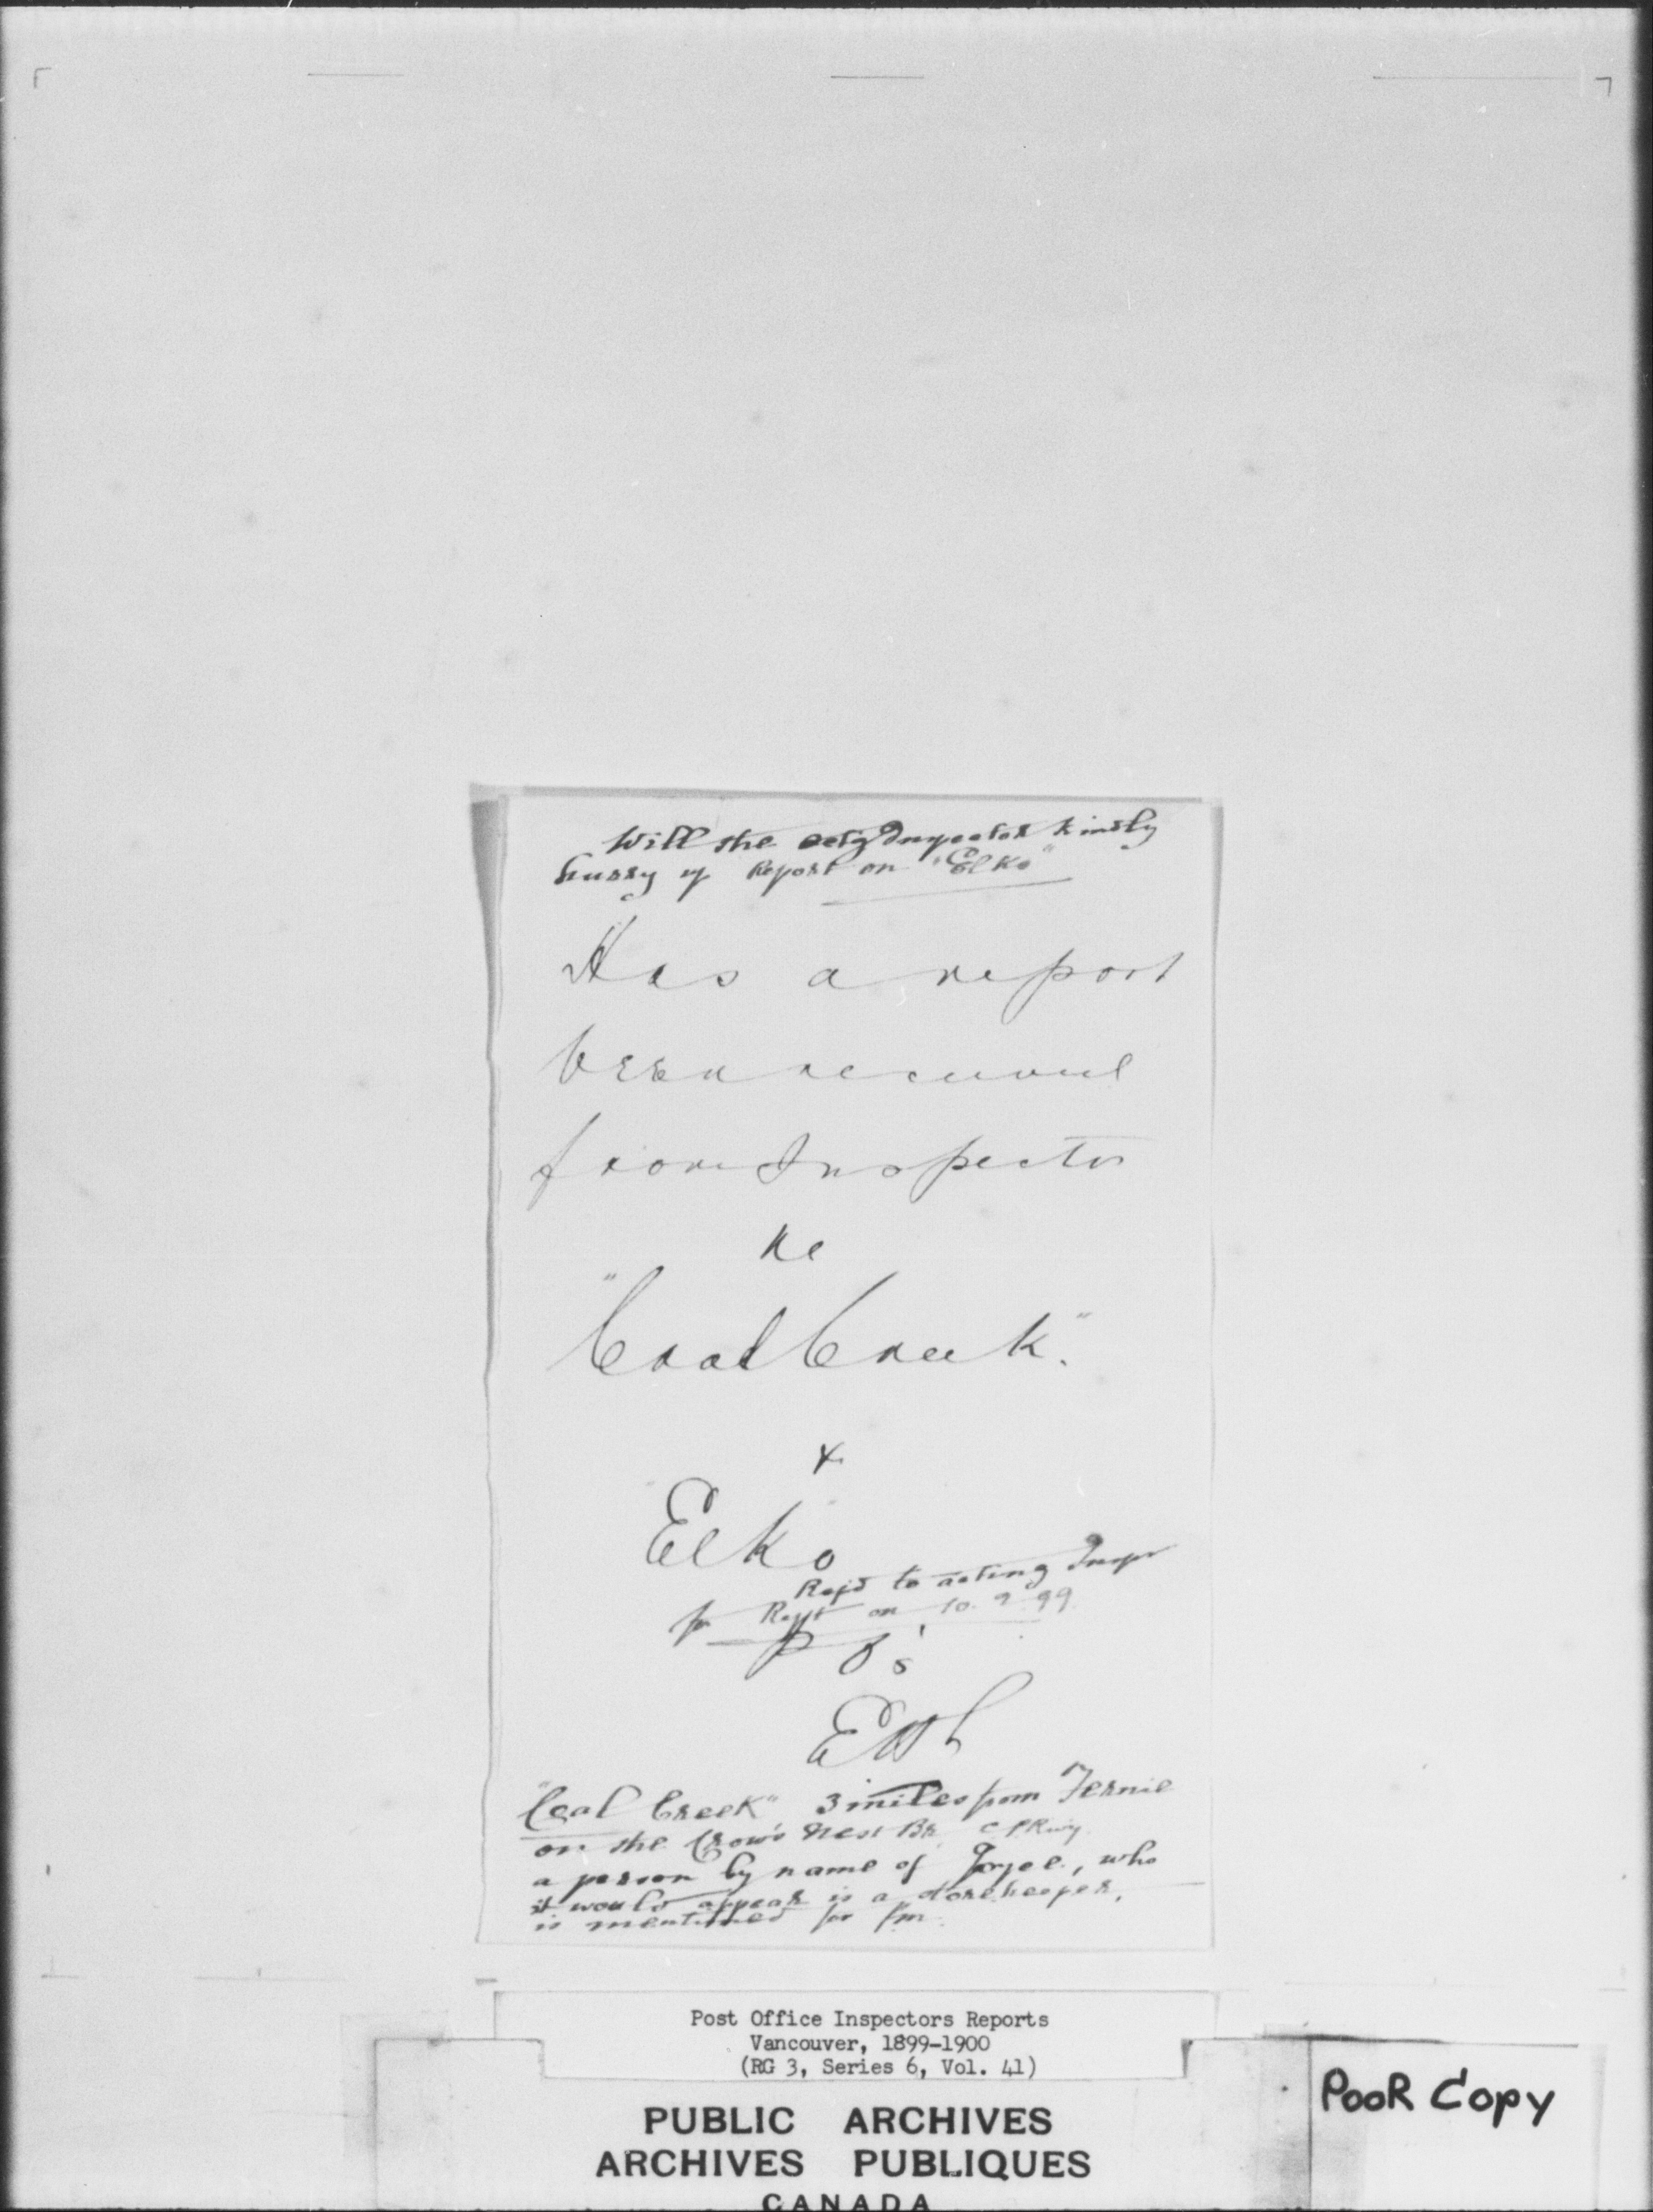 Will the actg Inspector kindly
hurry up Report on "Elko"
Has a report
been received
from Inspector
re
"Coal Creek".
&
Elko
Refd to acting Inspr
for Rept on 10.9.99
P O's
"Coal Creek" 3 miles from Fernie
on the Crow's Nest Br. C P Rwy.
a person by name of , who
it would appear is a storekeeper,
is mentioned for Pm.
Post Office Inspectors Reports
Vancouver, 1899-1900
(RG 3, Series 6, Vol. 41)
PooR Copy
PUBLIC ARCHIVES
ARCHIVES PUBLIQUES
CANADA